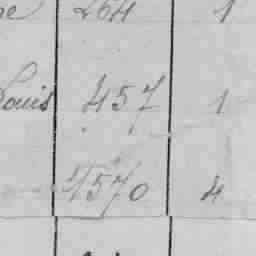 264 1
Louis 457 1
4570 4